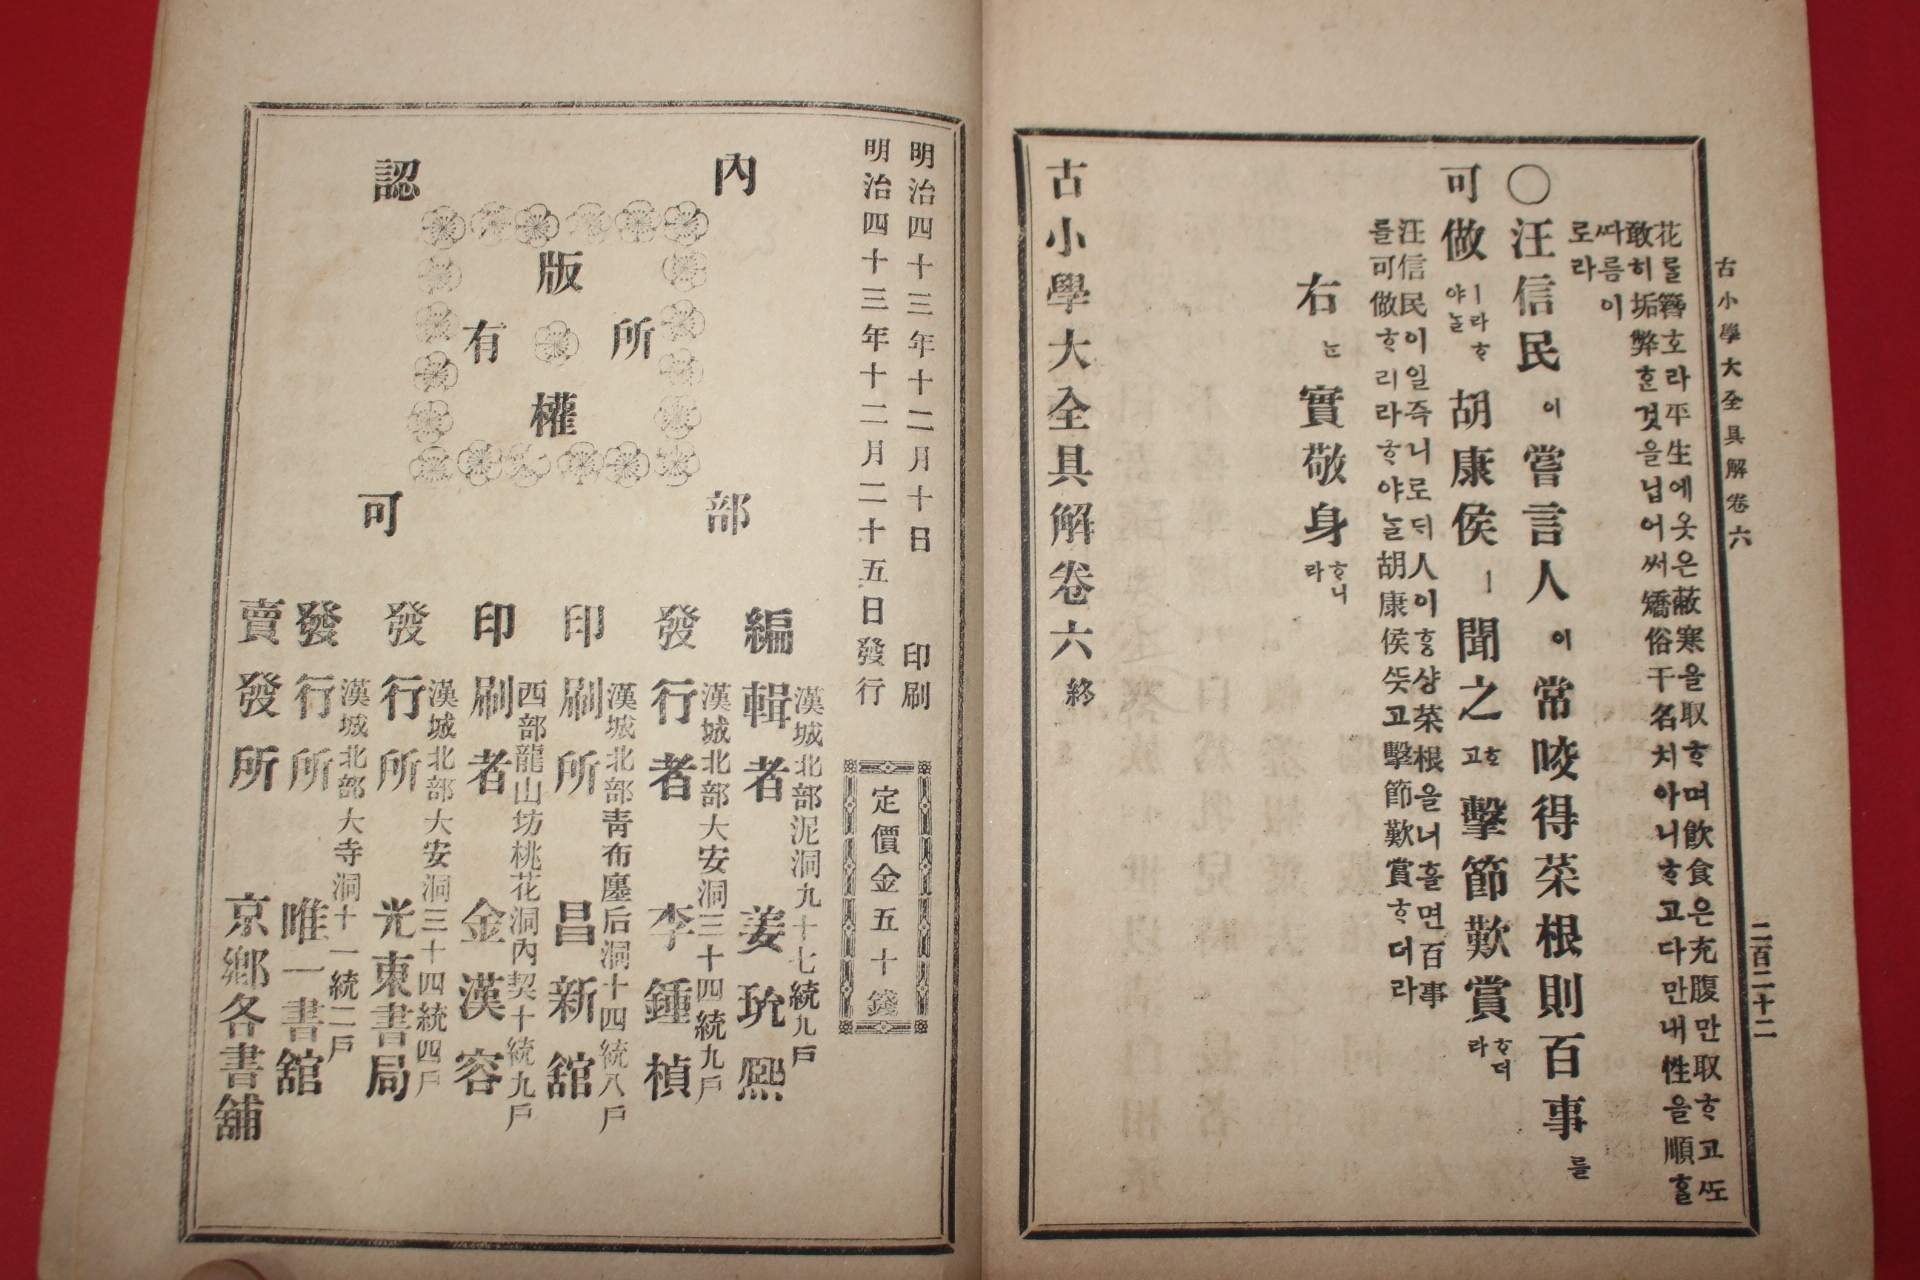 古小學大全具解卷六
二百二十二
花를簪호라平生에옷은蔽寒을取ᄒᆞ며飮食은充腹만取ᄒᆞ고ᄯᅩ
敢히垢弊ᄒᆞᆫ것을닙어써矯俗干名치아니ᄒᆞ고다만내性을順ᄒᆞᆯ
ᄯᅡ름이
로라
○汪信民이嘗言人이常咬得菜根則百事를
可做ㅣ라ᄒᆞ야ᄂᆞᆯ胡康侯ㅣ聞之ᄒᆞ고擊節歎賞ᄒᆞ더라
汪信民이일즉니로ᄃᆡ人이ᄒᆞᆼ상菜根을너흘면百事
를可做ᄒᆞ리라ᄒᆞ야ᄂᆞᆯ胡康侯ㅣ듯고擊節歎賞ᄒᆞ더라
右ᄂᆞᆫ實敬身ᄒᆞ니라
古小學大全具解卷六終
明治四十三年十二月十日 印刷
明治四十三年十二月二十五日發行
定價金五十錢
內部
認可
版權
所有
漢城北部泥洞九十七統九戶
編輯者 姜玧熙
漢城北部大安洞三十四統九戶
發行者 李鍾楨
漢城北部靑布廛后洞十四統八戶
印刷所 昌新舘
西部龍山坊桃花洞內契十統九戶
印刷者 金漢容
漢城北部大安洞三十四統四戶
發行所 光東書局
漢城北部大寺洞十一統二戶
發行所 唯一書舘
賣發所 京鄕各書舖